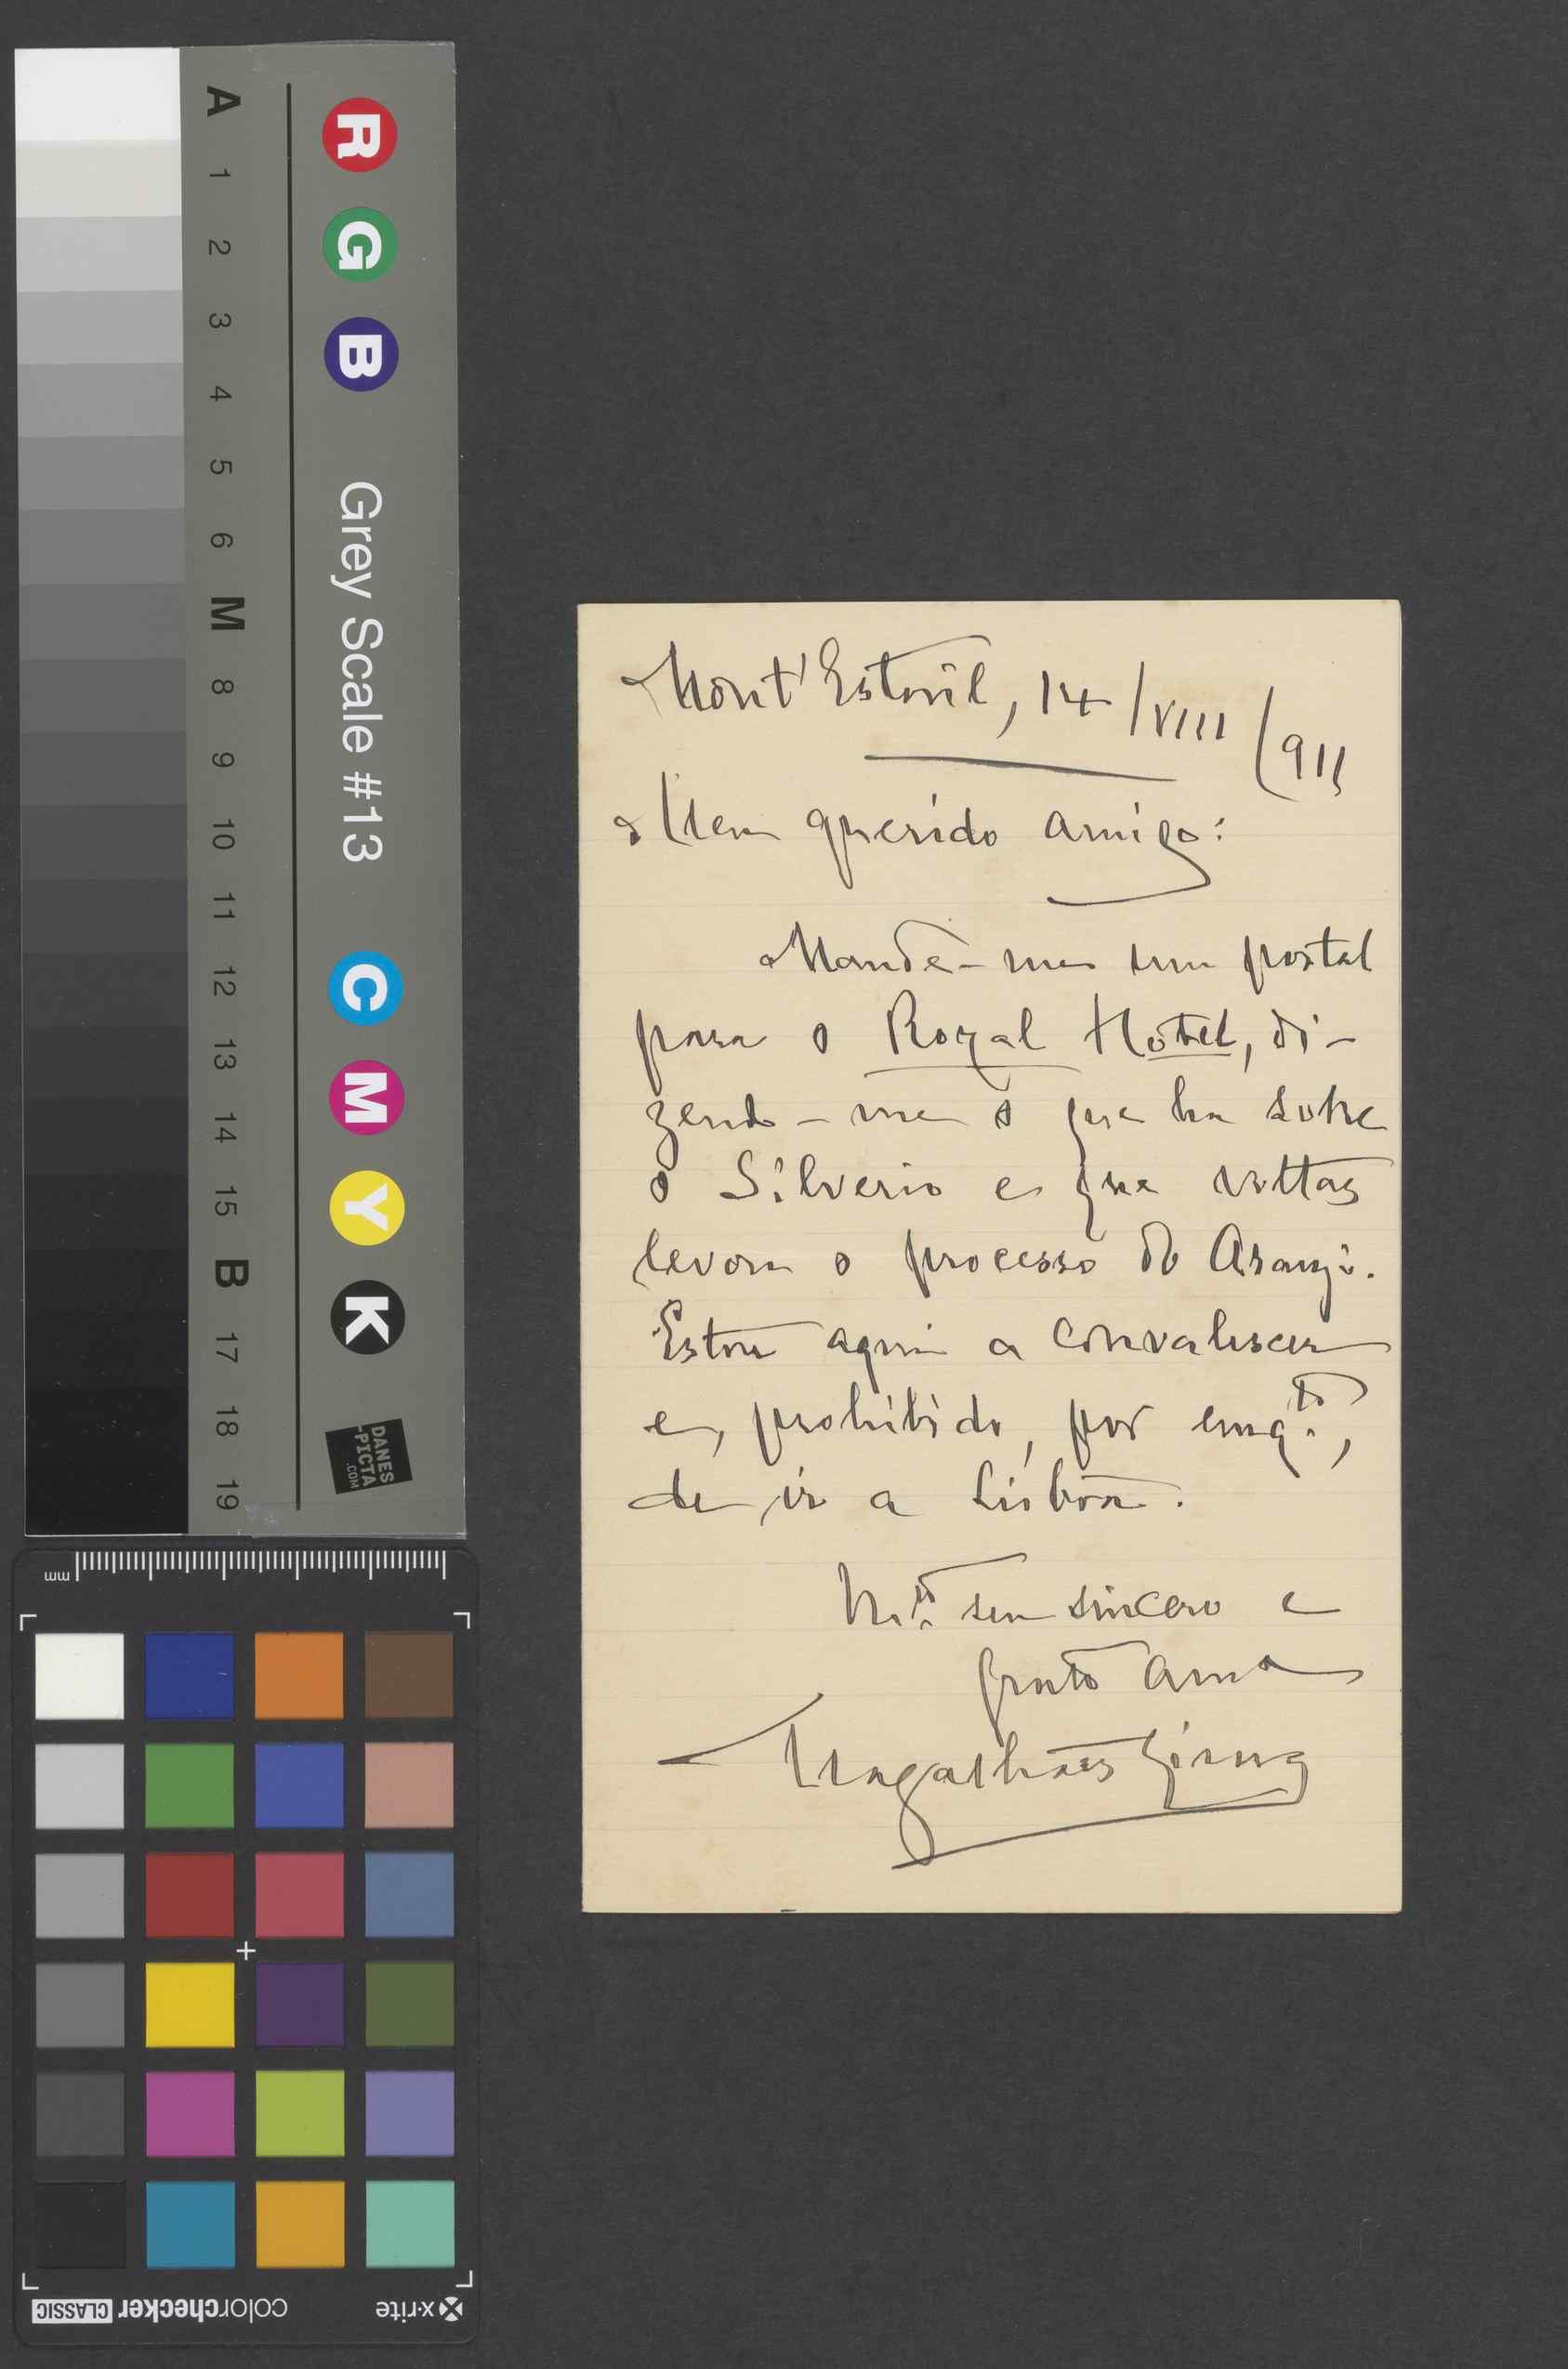 A
1
2
3
4
5
6
M
8
9
10
11
12
13
14
15
B
17
18
19
R
G
B
Grey Scale #13
C
M
Y
K
DANES
-PICTA
.COM
mm
colorchecker CLASSIC
x-rite
Mont'Estoril, 14/VIII/911
Meu querido amigo:
Mande-me um postal
para o Royal Hotel, di-
zendo-me o que ha sobre
o Silverio e que voltas
levou o processo do Araujo.
Estou aqui a convalescer
e, prohibido, por emq.to,
de ir a Lisboa.
M.to seu sincero e
grato amo
Magalhães Lima